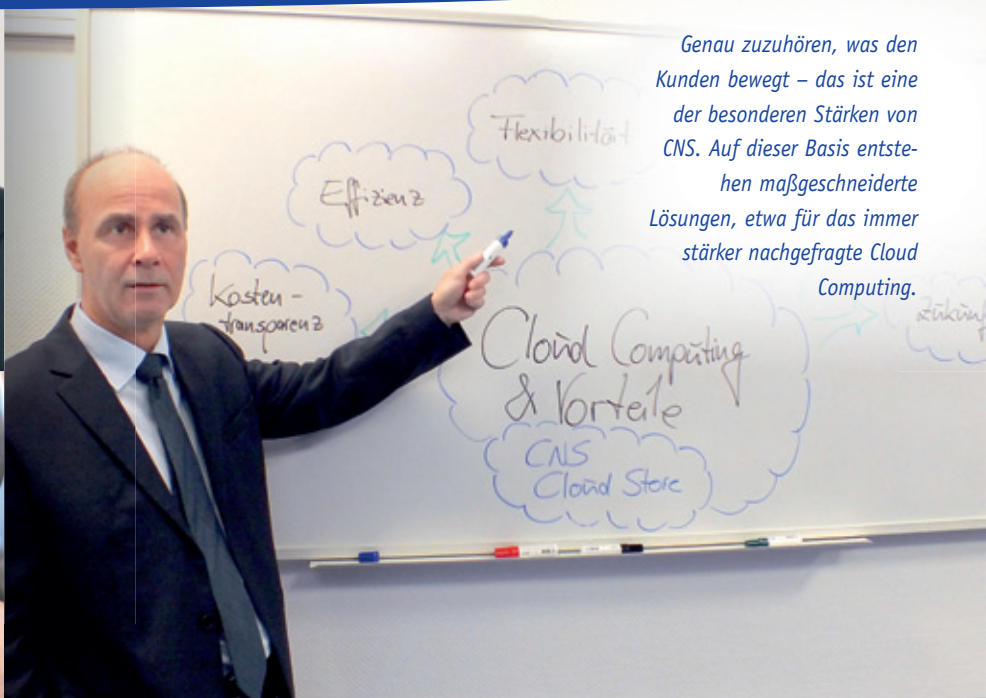 Genau zuzuhören, was den
Kunden bewegt – das ist eine
der besonderen Stärken von
CNS. Auf dieser Basis entste-
hen maßgeschneiderte
Lösungen, etwa für das immer
stärker nachgefragte Cloud
Computing.
Flexibilität
Effizienz
Kosten-
transparenz
Cloud Computing
& Vorteile
CNS
Cloud Store